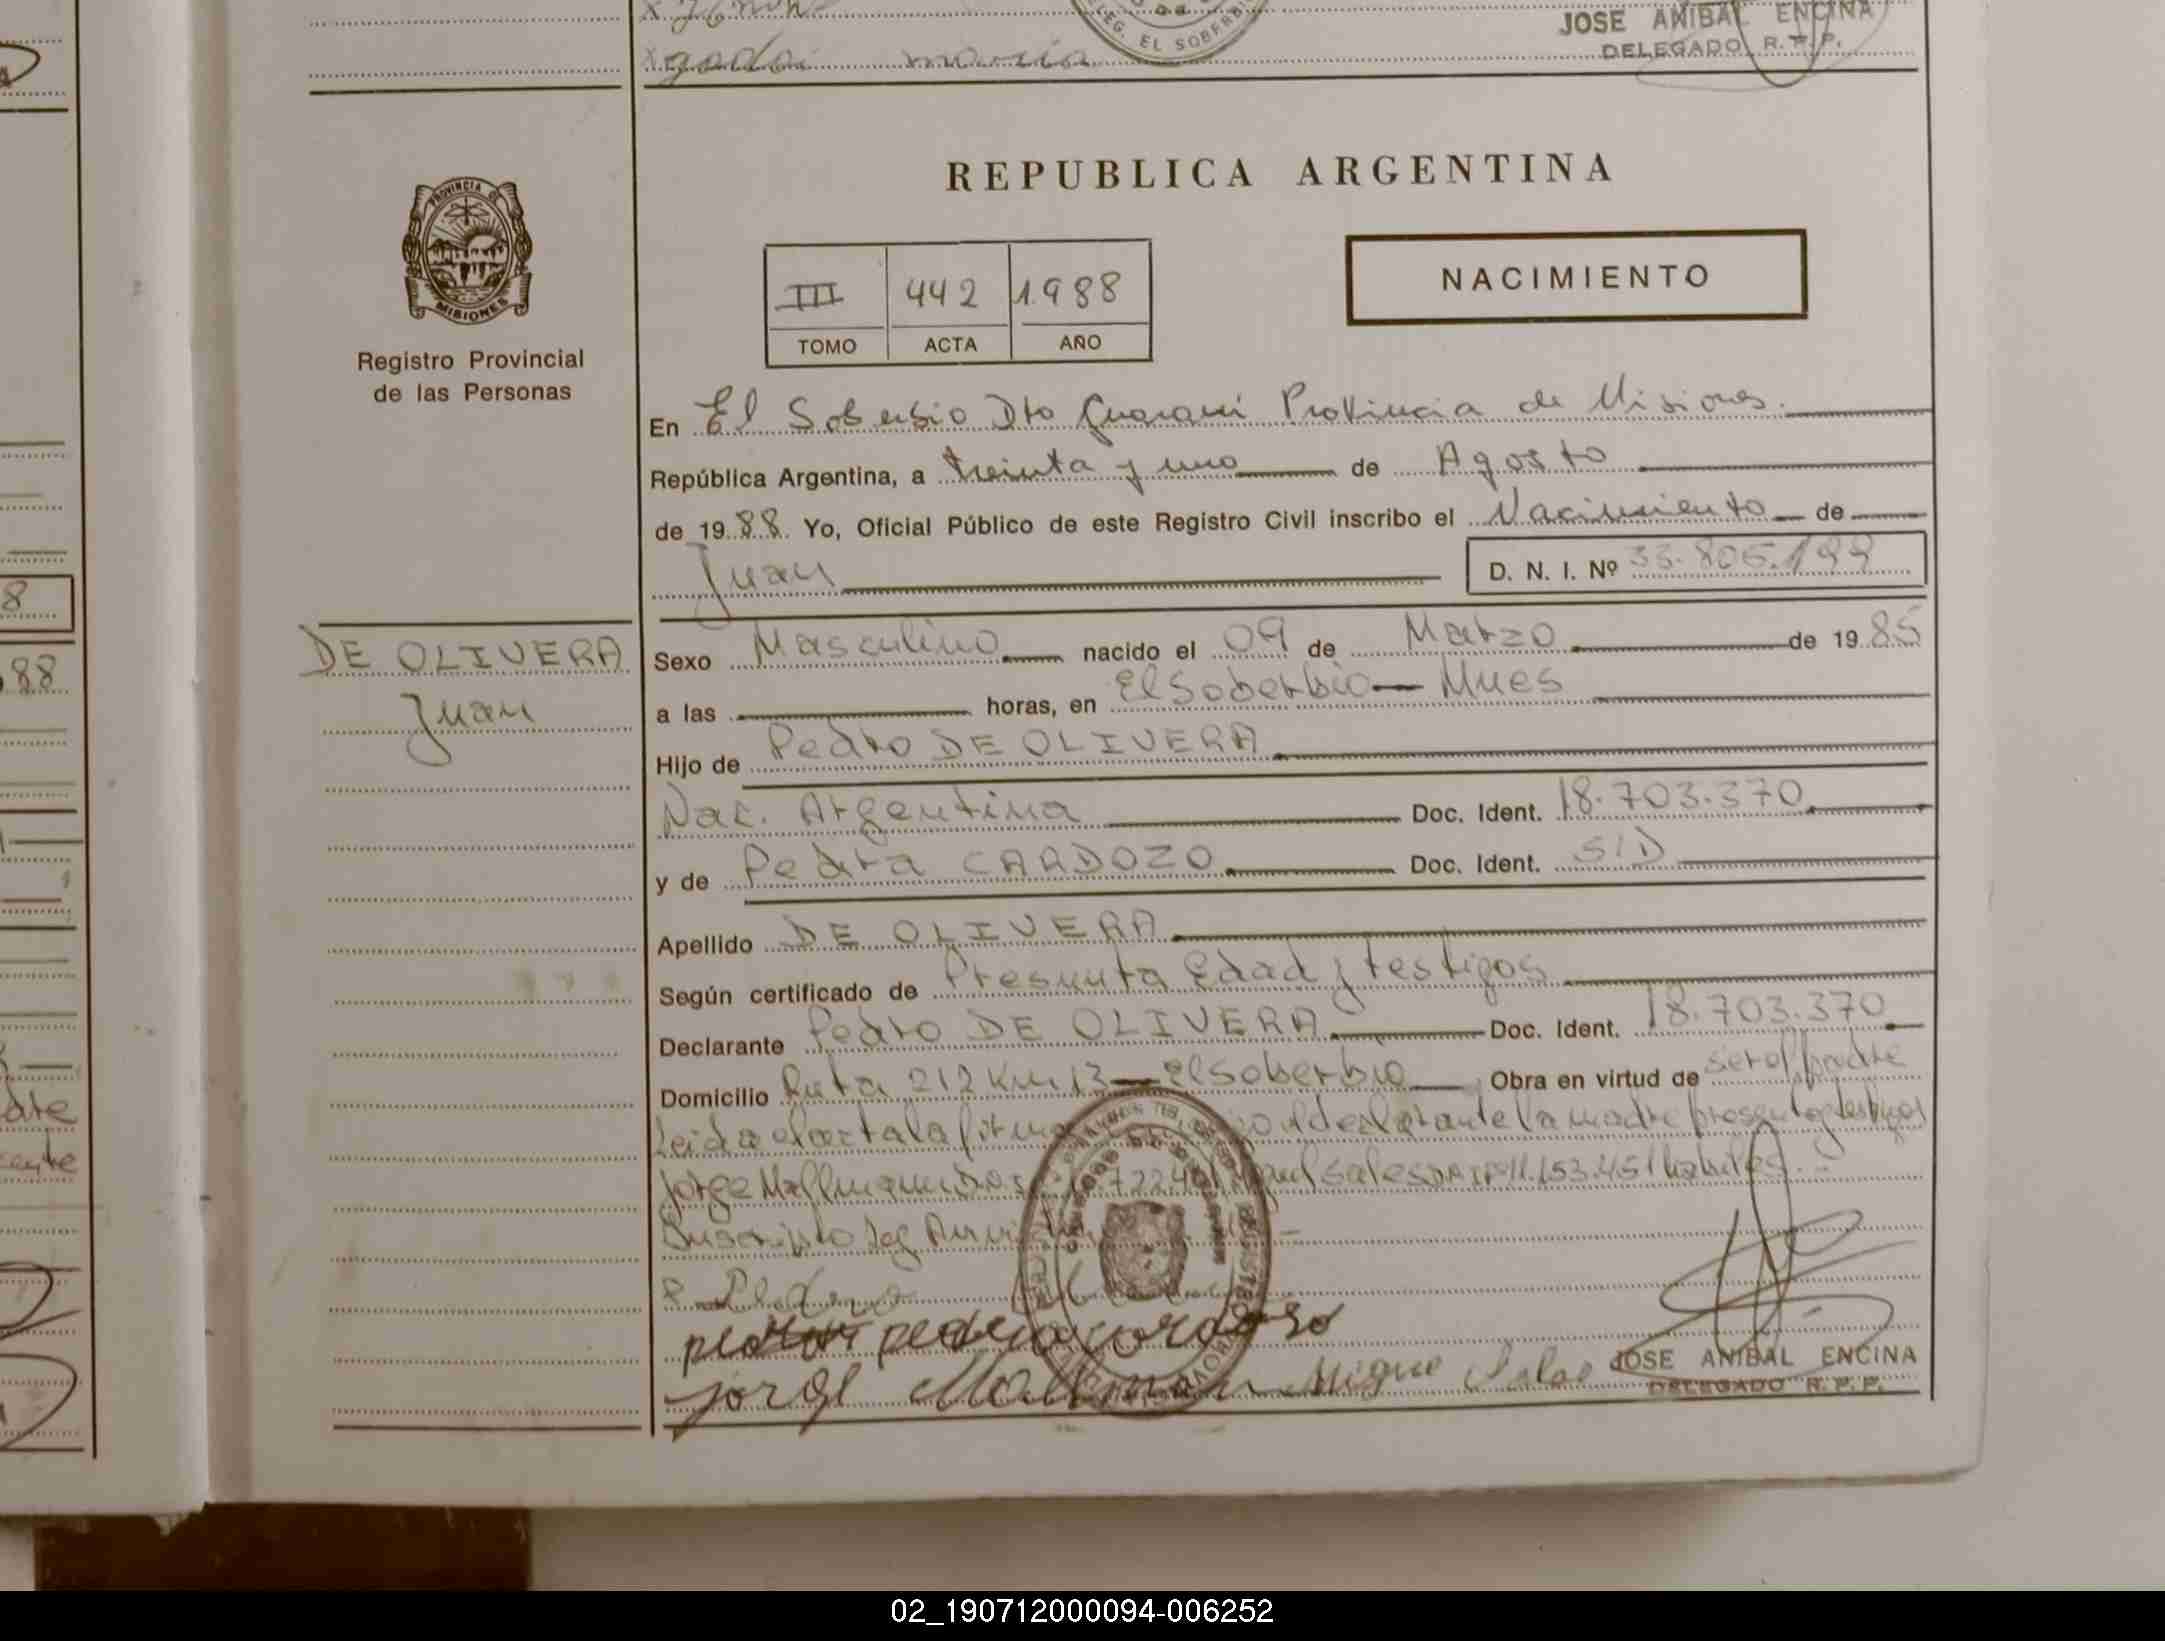 gadai maria
LEG. EL SOBERBI
JOSE ANIBAL ENCINA
DELEGADO R. P. P.
PROVINCIA DE
MISIONES
Registro Provincial
de las Personas
REPUBLICA ARGENTINA
III 442 1.988
TOMO ACTA AÑO
NACIMIENTO
En El Soberbio Dto Guaraní Provincia de Misiones.
República Argentina, a treinta y uno de Agosto
de 19 88. Yo, Oficial Público de este Registro Civil inscribo el Nacimiento de
Juan D. N. I. Nº 33.805.199
8
88
DE OLIVERA
Juan
Sexo Masculino nacido el 09 de Marzo de 19 85
a las horas, en El Soberbio - Mnes
Hijo de Pedro DE OLIVERA
Nac. Argentina Doc. Ident. 18.703.370
y de Pedra CARDOZO Doc. Ident. S/D
Apellido DE OLIVERA
Según certificado de Presunta Edad y testigos
Declarante Pedro DE OLIVERA Doc. Ident. 18.703.370
Domicilio Ruta 212 Km 13 - El Soberbio Obra en virtud de ser el padre
Leida el acta la declarante la madre presente testigos
Jorge Mallmann
pedra cardoso
jorge Mallmann Migue Salas
JOSE ANIBAL ENCINA
DELEGADO R. P. P.
02_190712000094-006252